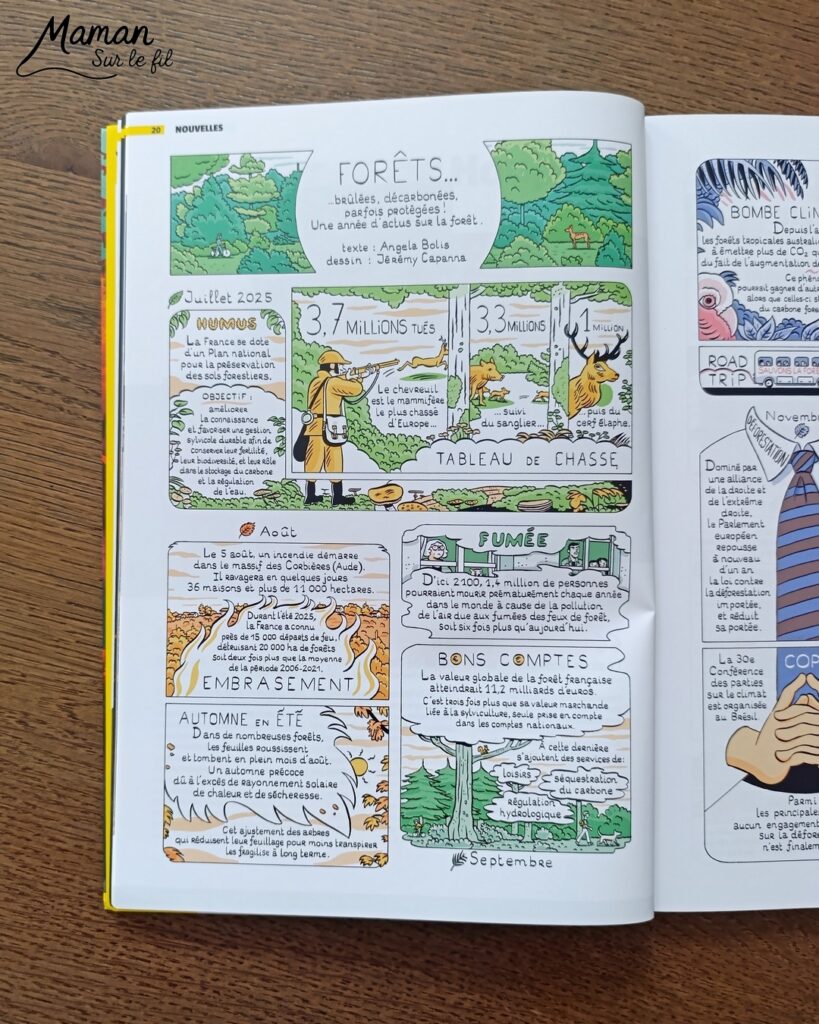 Maman
Sur le fil
20 NOUVELLES
FORÊTS...
...brûlées, décarbonées,
parfois protégées !
Une année d'actus sur la forêt.
texte : Angela Bolis
dessin : Jérémy Capanna
Juillet 2025
HUMUS
La France se dote
d'un Plan national
pour la préservation
des sols forestiers.
OBJECTIF :
améliorer
la connaissance
et favoriser une gestion
sylvicole durable afin de
conserver leur fertilité,
leur biodiversité, et leur rôle
dans le stockage du carbone
et la régulation
de l'eau.
3,7 MILLIONS TUÉS
Le chevreuil
est le mammifère
le plus chassé
d'Europe...
3,3 MILLIONS
...suivi
du sanglier...
1 MILLION
...puis du
cerf élaphe.
TABLEAU DE CHASSE
Août
Le 5 août, un incendie démarre
dans le massif des Corbières (Aude).
Il ravagera en quelques jours
36 maisons et plus de 11 000 hectares.
Durant l'été 2025,
la France a connu
près de 15 000 départs de feu,
détruisant 20 000 ha de forêts
soit deux fois plus que la moyenne
de la période 2006-2021.
EMBRASEMENT
AUTOMNE EN ÉTÉ
Dans de nombreuses forêts,
les feuilles roussissent
et tombent en plein mois d'août.
Un automne précoce
dû à l'excès de rayonnement solaire
de chaleur et de sécheresse.
Cet ajustement des arbres
qui réduisent leur feuillage pour moins transpirer
les fragilise à long terme.
FUMÉE
D'ici 2100, 1,4 million de personnes
pourraient mourir prématurément chaque année
dans le monde à cause de la pollution
de l'air due aux fumées des feux de forêt,
soit six fois plus qu'aujourd'hui.
BONS COMPTES
La valeur globale de la forêt française
atteindrait 11,2 milliards d'euros.
C'est trois fois plus que sa valeur marchande
liée à la sylviculture, seule prise en compte
dans les comptes nationaux.
À cette dernière
s'ajoutent des services de :
loisirs
séquestration
du carbone
régulation
hydrologique
Septembre
BOMBE CLIM
Depuis l'a
les forêts tropicales australi
à émettre plus de CO2 qu
du fait de l'augmentation de
Ce phén
pourrait gagner d'autre
alors que celles-ci s
du carbone fores
ROAD
TRIP
SAUVONS LA FORÊ
Novembre
DÉFORESTATION
Dominé par
une alliance
de la droite et
de l'extrême
droite,
le Parlement
européen
repousse
à nouveau
d'un an
la loi contre
la déforestation
importée,
et réduit
sa portée.
La 30e
Conférence
des parties
sur le climat
est organisée
au Brésil.
COP
Parmi
les principale
aucun engagement
sur la défor
n'est finalem